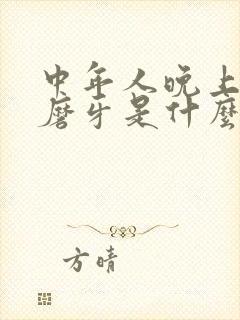 中年人晚上
磨牙是什麼
方晴